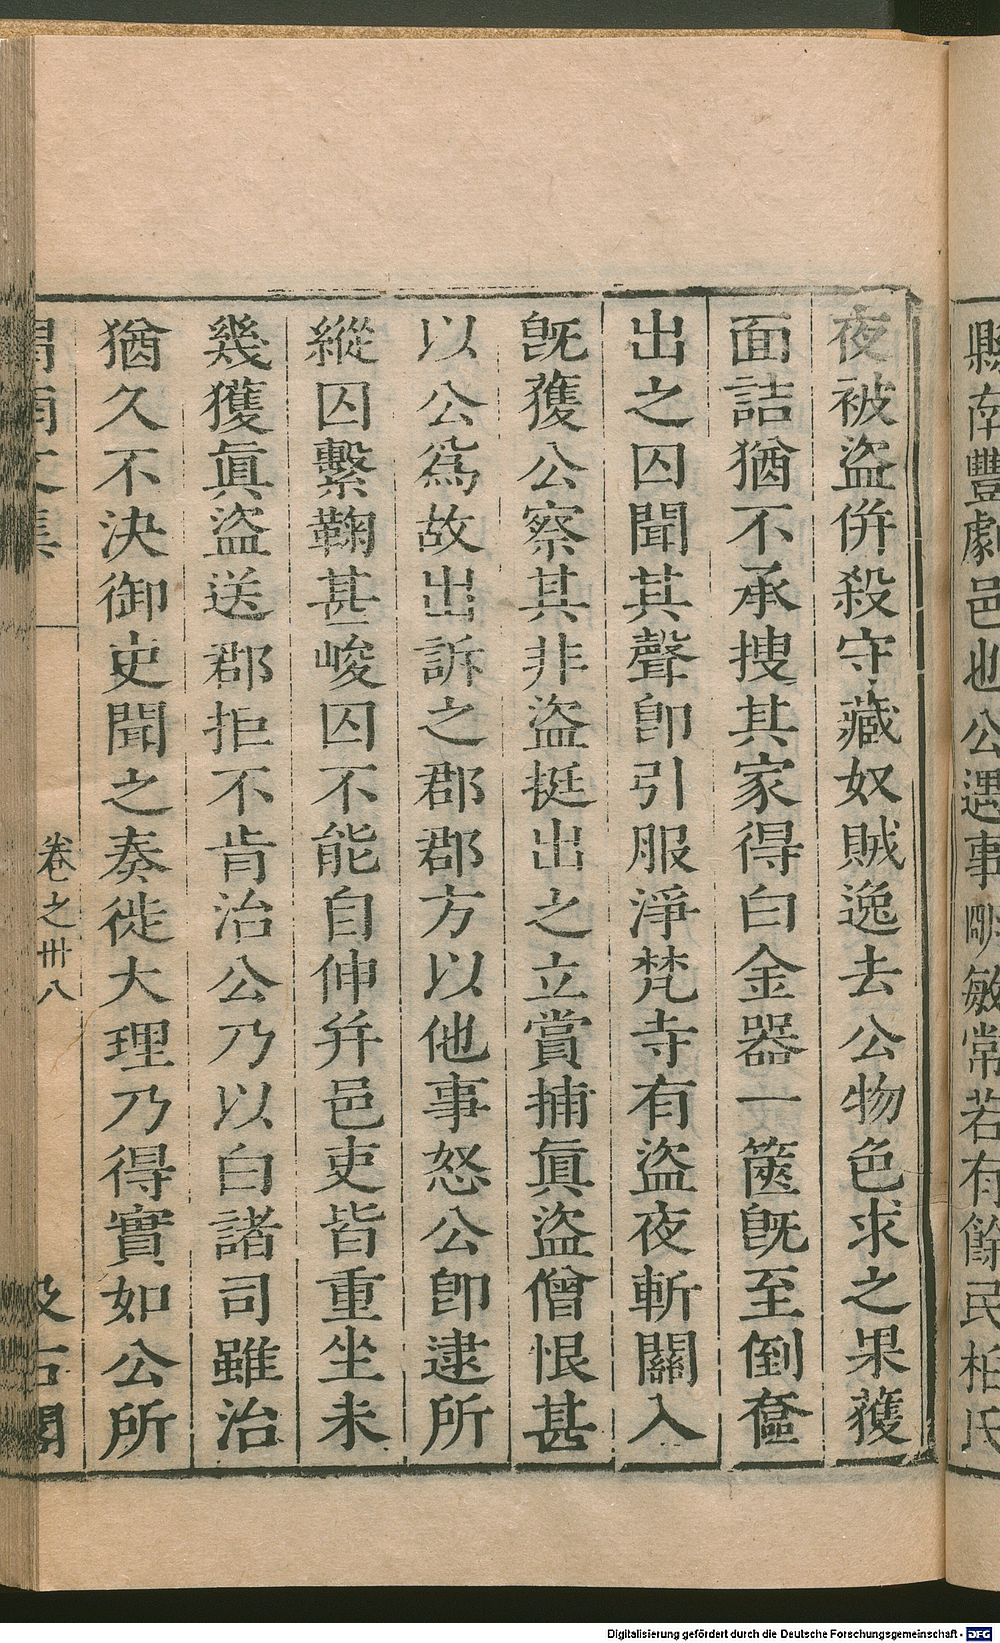 縣南豐劇邑也公遇事剛敏常若有餘民柏氏
夜被盜併殺守藏奴賊逸去公物色求之果獲
面詰猶不承搜其家得白金器一篋旣至倒奩
出之囚聞其聲卽引服淨梵寺有盜夜斬關入
旣獲公察其非盜挺出之立賞捕眞盜僧恨甚
以公爲故出訴之郡郡方以他事怒公卽逮所
縱囚繫鞠甚峻囚不能自伸幷邑吏皆重坐未
幾獲眞盜送郡拒不肯治公乃以白諸司雖治
猶久不決御史聞之奏徙大理乃得實如公所
渭南文集
卷之卅八
汲古閣
Digitalisierung gefördert durch die Deutsche Forschungsgemeinschaft - DFG